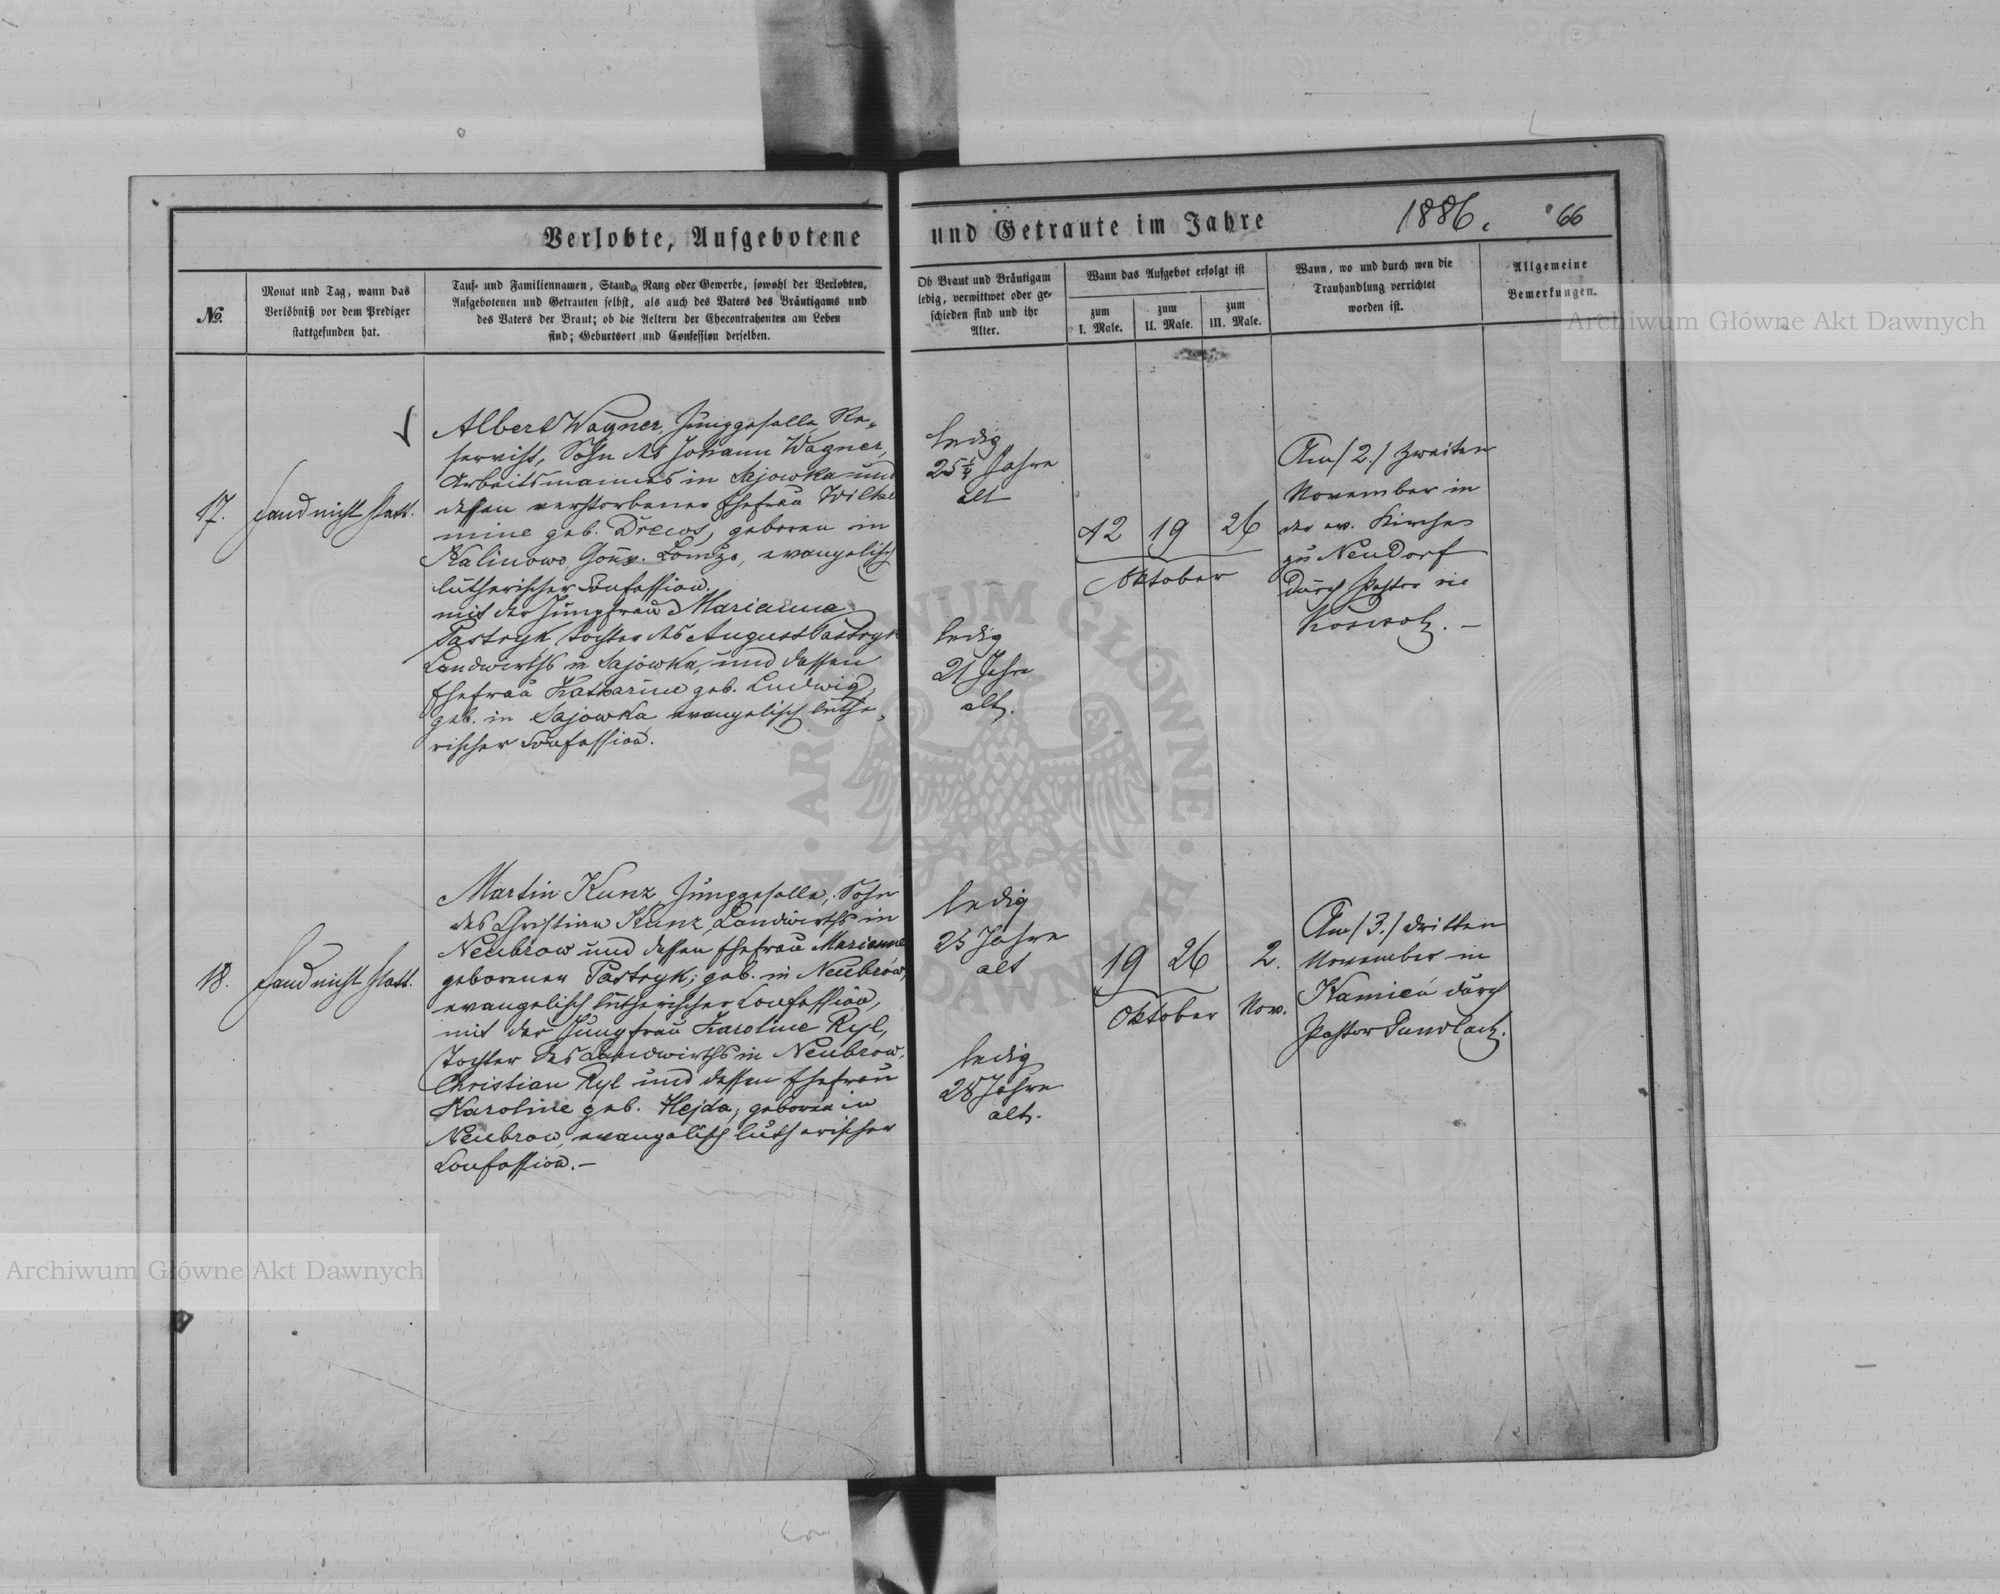 Verlobte, Aufgebotene und Getraute im Jahre 1886. 66
№
Monat und Tag, wann das
Verlöbniß vor dem Prediger
stattgefunden hat.
Tauf- und Familiennamen, Stand, Rang oder Gewerbe, sowohl der Verlobten,
Aufgebotenen und Getrauten selbst, als auch des Vaters des Bräutigams und
des Vaters der Braut; ob die Aeltern der Ehecontrahenten am Leben
sind; Geburtsort und Confession derselben.
Ob Braut und Bräutigam
ledig, verwittwet oder ge-
schieden sind und ihr
Alter.
Wann das Aufgebot erfolgt ist
zum
I. Male.
zum
II. Male.
zum
III. Male.
Wann, wo und durch wen die
Trauhandlung verrichtet
worden ist.
Allgemeine
Bemerkungen.
17.
fand nicht statt.
Albert Wagner, Junggeselle, Re-
servist, Sohn des Johann Wagner,
Arbeitsmannes in Sajowka und
dessen verstorbener Ehefrau Wilhel
mine geb. Drews, geboren in
Kalinowo, Gouv. Lomza, evangelisch
lutherischer Confession.
mit der Jungfrau Marianna
Pastryk, Tochter des August Pastryk
Landwirths in Sajowka, und dessen
Ehefrau Katharine geb. Ludwig,
geb. in Sajowka evangelisch luthe-
rischer Confession.
ledig
25 1/4 Jahre
alt
ledig
21 Jahre
alt.
12 19 26
Oktober
Am /2./ zweiten
November in
der ev. Kirche
zu Neudorf
durch Pastor
18.
fand nicht statt.
Martin Kunz, Junggeselle, Sohn
des Christian Kunz, Landwirths in
Neubrow und dessen Ehefrau Marianne
geborener Pastryk; geb. in Neubrów,
evangelisch lutherischer Confession,
mit der Jungfrau Karoline Ryl,
Tochter des Landwirths in Neubrow,
Christian Ryl und dessen Ehefrau
Karoline geb. Hejda, geboren in
Neubrow, evangelisch lutherischer
Confession. –
ledig
25 Jahre
alt
ledig
28 Jahre
alt.
19 26 2.
Oktober Nov.
Am /3./ dritten
November in
Kamień durch
Pastor Gundlach.
Archiwum Główne Akt Dawnych
Archiwum Główne Akt Dawnych
ARCHIWUM GŁÓWNE AKT DAWNYCH